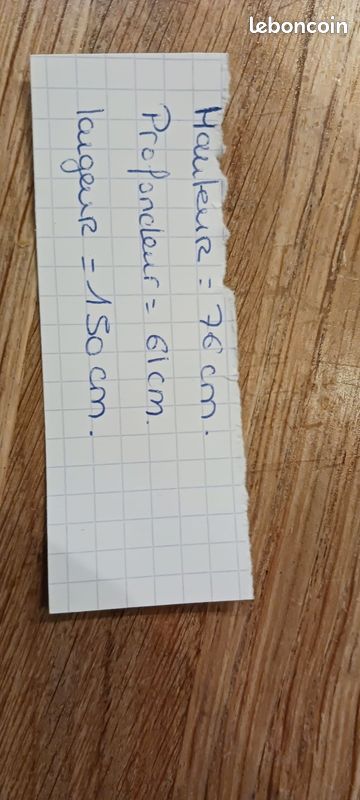 leboncoin
Hauteur = 76 cm.
Profondeur = 61 cm.
largeur = 150 cm.